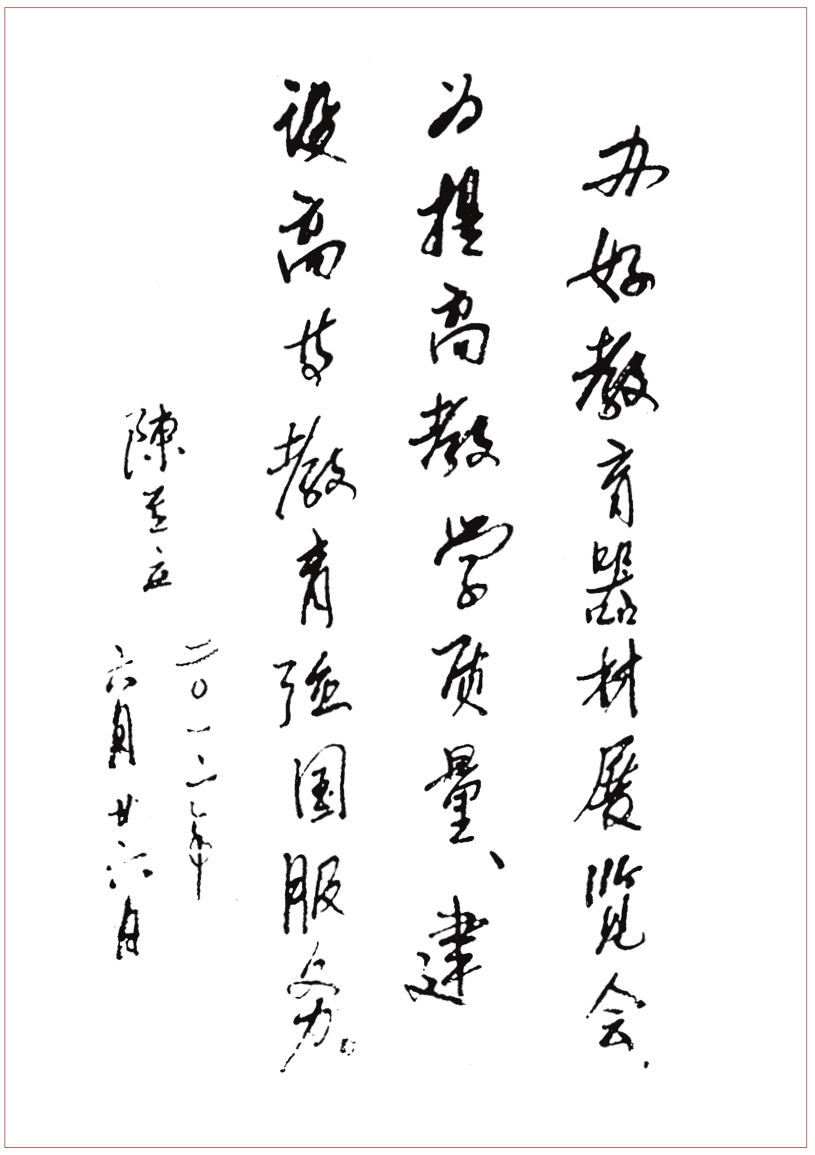 办好教育器材展览会.
为提高教学质量、建
设高等教育强国服务。
陳
二〇一二年
六月廿六日